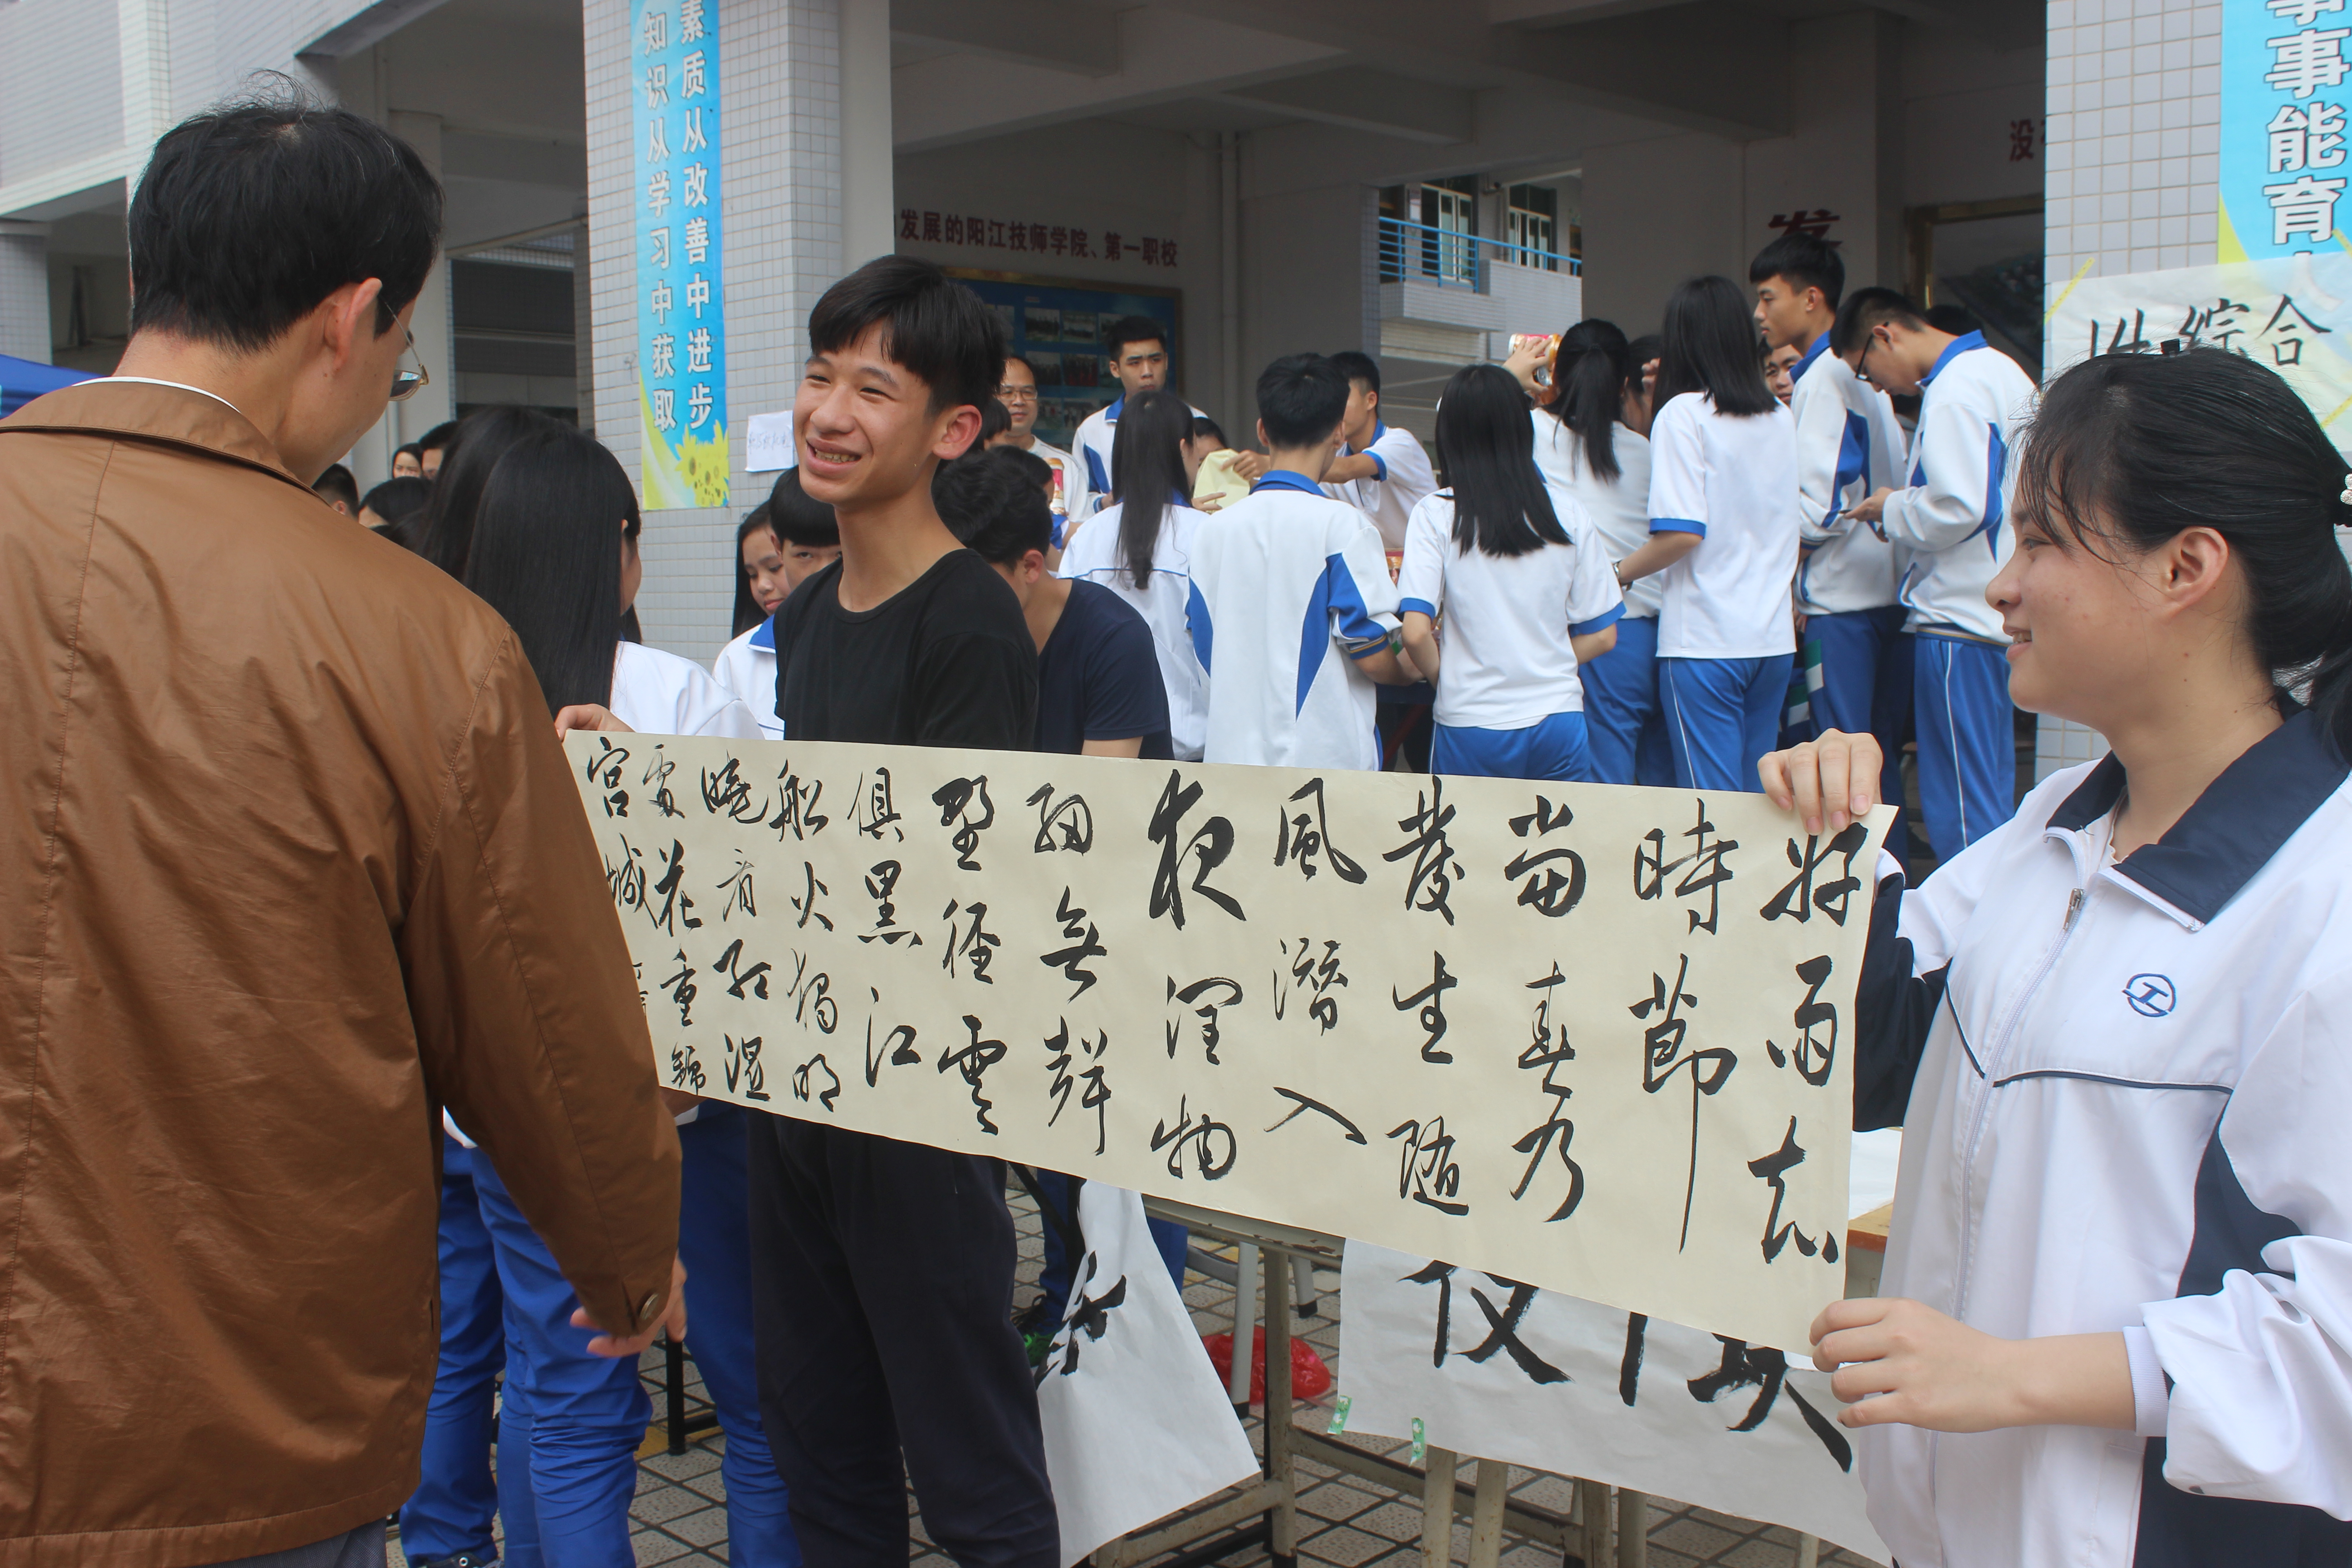 素质从改善中进步
知识从学习中获取
发展的阳江技师学院、第一职校
发
没
事能育
综合
好雨知
時節
當春乃
發生隨
風潛入
夜潤物
細無聲
野徑雲
俱黑江
船火獨明
曉看紅濕
處花重錦
宮城